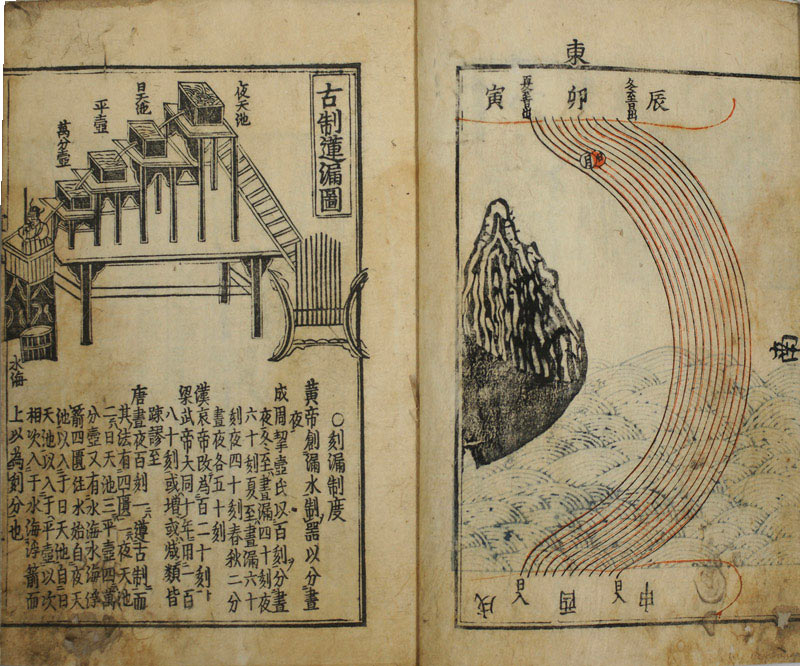 東
辰
冬至日出
卯
寅
南
申
日入
酉
日入
戌
古制蓮漏圖
夜天池
日天池
平壺
萬分壺
水海
○刻漏制度
黃帝創漏水制器以分晝
夜
成周挈壺氏以百刻分晝
夜冬至晝漏四十刻夜
六十刻夏至晝漏六十
刻夜四十刻春秋二分
晝夜各五十刻
漢哀帝改爲百二十刻
梁武帝大同十年用一百
八十刻或增或減類皆
踈謬至
唐晝夜百刻一遵古制而
其法有四匱一夜天池
二日天池三平壺四萬
分壺又有水海水海浮
箭四匱注水始自夜天
池以入于日天池自日
天池以入于平壺以次
相次入于水海浮箭而
上以爲刻分也